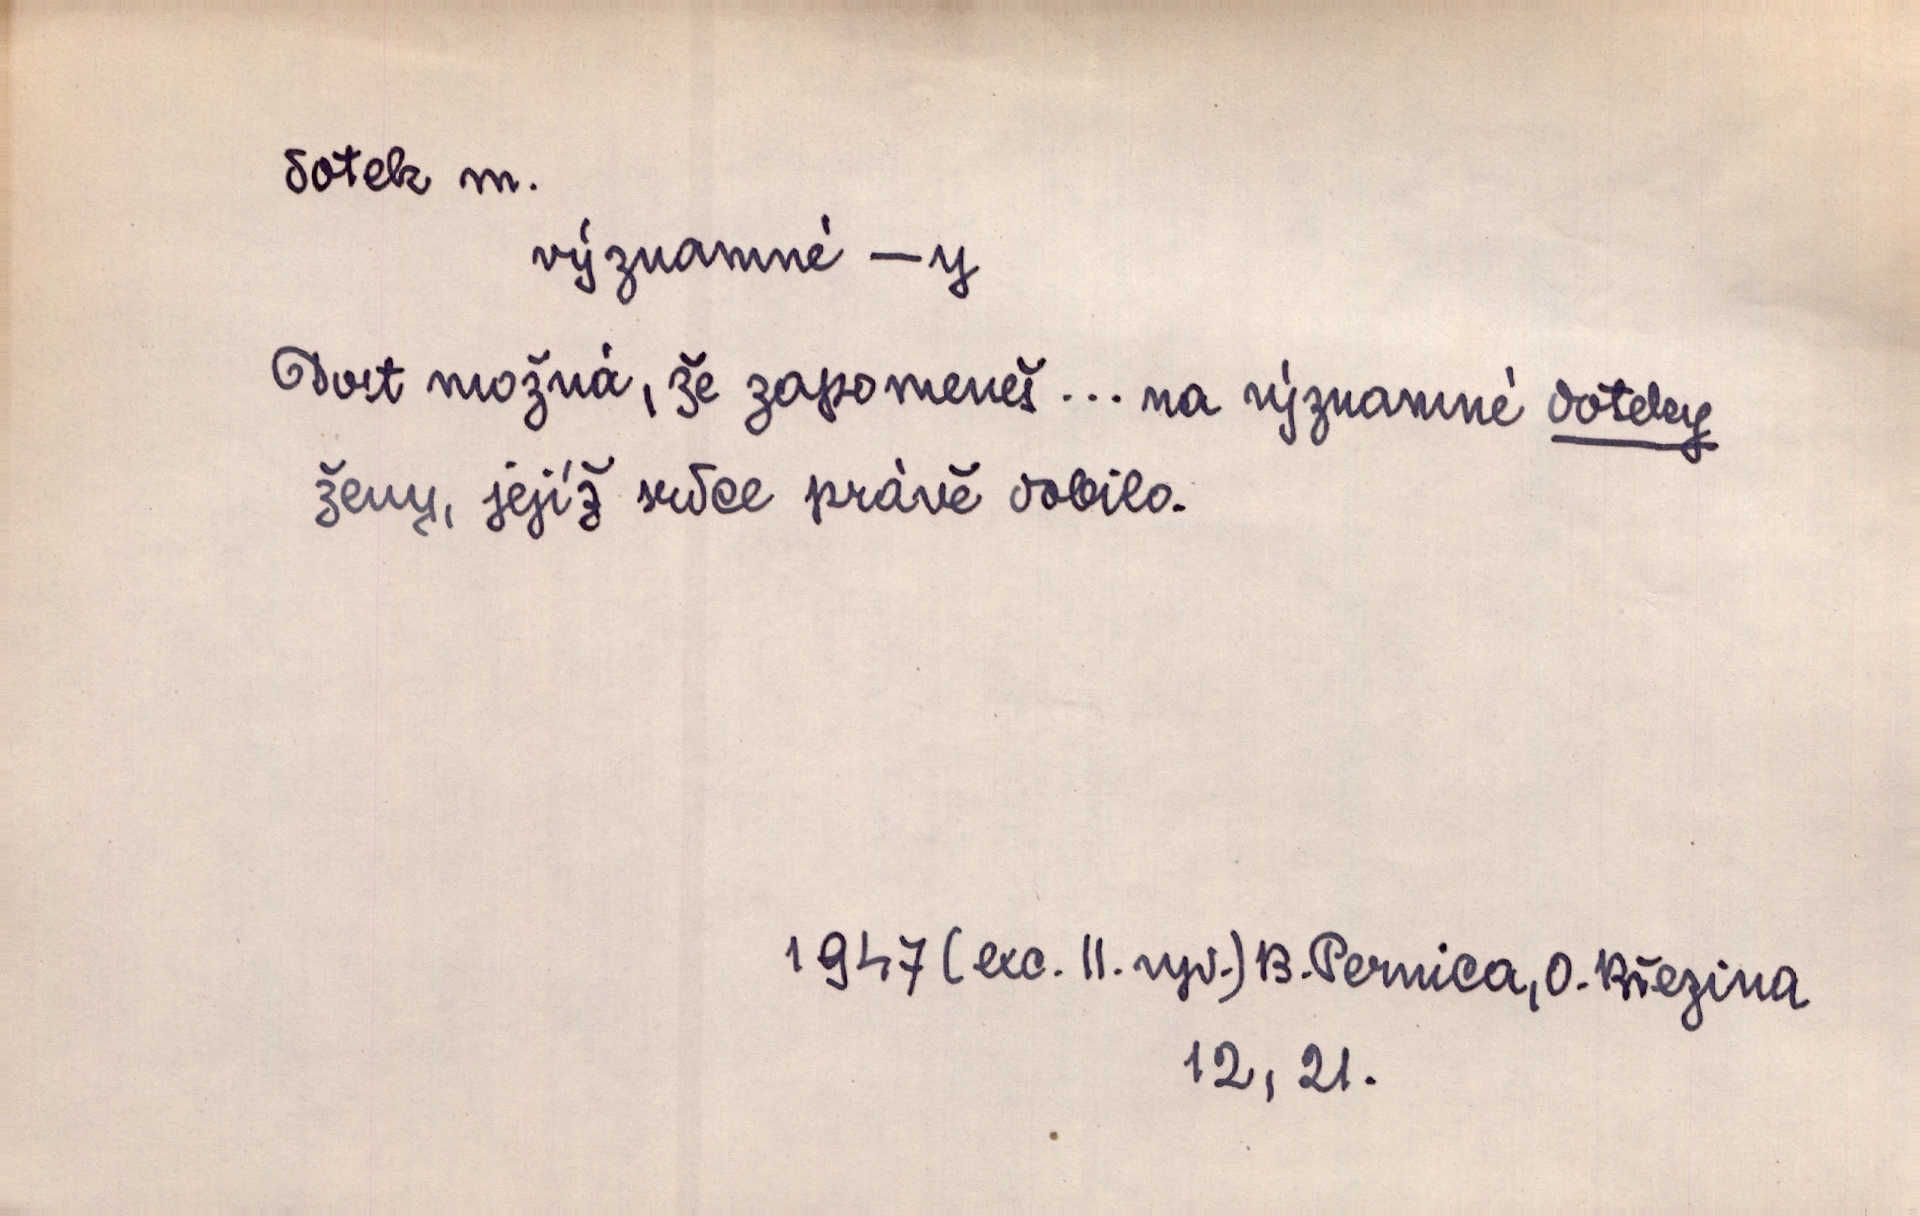 dotek m.
významné —y
Dost možná, že zapomeneš ... na významné doteky
ženy, jejíž srdce právě dobilo.
1947 (exc. II. vyd.) B. Pernica, O. Březina
12, 21.